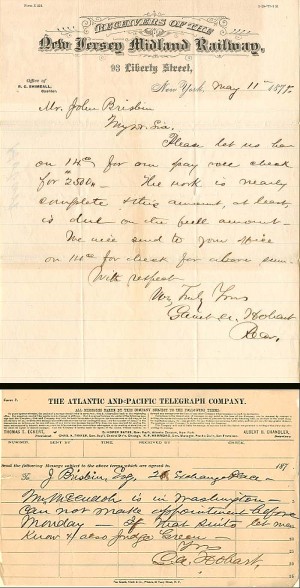 RECEIVERS OF THE
New Jersey Midland Railway,
93 Liberty Street,
Office of
New York, May 11th 187
Mr. John Brisbin
My Dr. Sir.
Please let us have
on 14th for our pay
check
for $2500. The work is nearly
complete & this amount, at least,
is due on the full amount.
We will send to your office
on 14th for check for above sum.
With respect
Very Truly Yours
Garret A. Hobart
Recr.
THE ATLANTIC AND PACIFIC TELEGRAPH COMPANY.
ALL MESSAGES TAKEN BY THIS COMPANY SUBJECT TO THE FOLLOWING TERMS:
THOMAS T. ECKERT,
ALBERT B. CHANDLER,
NUMBER. SENT BY REC'D BY TIME. CHECK.
Send the following Message subject to the above terms which are agreed to. 187
To J Brisbin, Esq. Exchange Place
My McCulloh is in Washington
Can not make appointment before
Monday - If that suits let me
know & also Judge Green -
Yrs
G.A. Hobart.